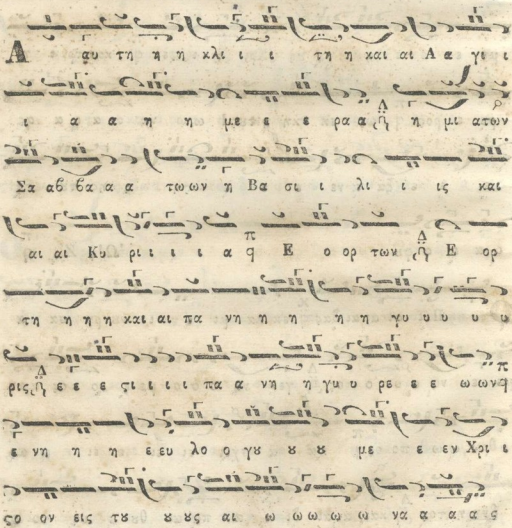 Α αυ τη η η κλι ι ι τη η και αι Α α γι ι
ι α α η η με ε ε ρα α η μι ατων
Σα αβ βα α α τω ων η Βα σι ι λι ι ις και
αι αι Κυ ρι ι ι ι α Ε ο ορ των Ε ορ
τη η η η και αι πα νη η η η η γυ υ υ υ υ
ρις ε ε ε ϛι ι ι ι πα α α νη η γυ υ ρε ε ε ω ων
ε νη η η ε ευ λο ο γȣ ȣ ȣ με ε εν Χρι ι
ϛο ον εις τȣ ȣ ȣς αι ω ω ω ω ω να α α ας